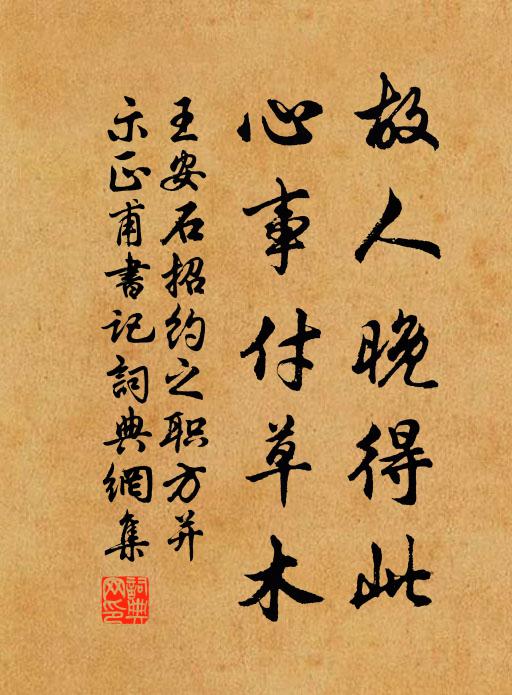 故人晚得此
心事付草木
王安石招约之职方并
示正甫書记詞典網集
詞典網印